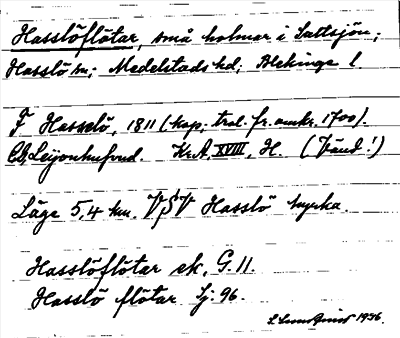 Hasslöflötar, små holmar i Saltsjön;
Hasslö sn; Medelstads hd; Blekinge l.
F Hasslö, 1811 (kop; trol. fr. omkr. 1700).
C.G. Leijonhufvud. Kr.A. XVIII, H. (Vänd!)
Läge 5,4 km. VSV Hasslö kyrka.
Hasslöflötar ek, G. 11.
Hasslö flötar Sj. 96.
1936.